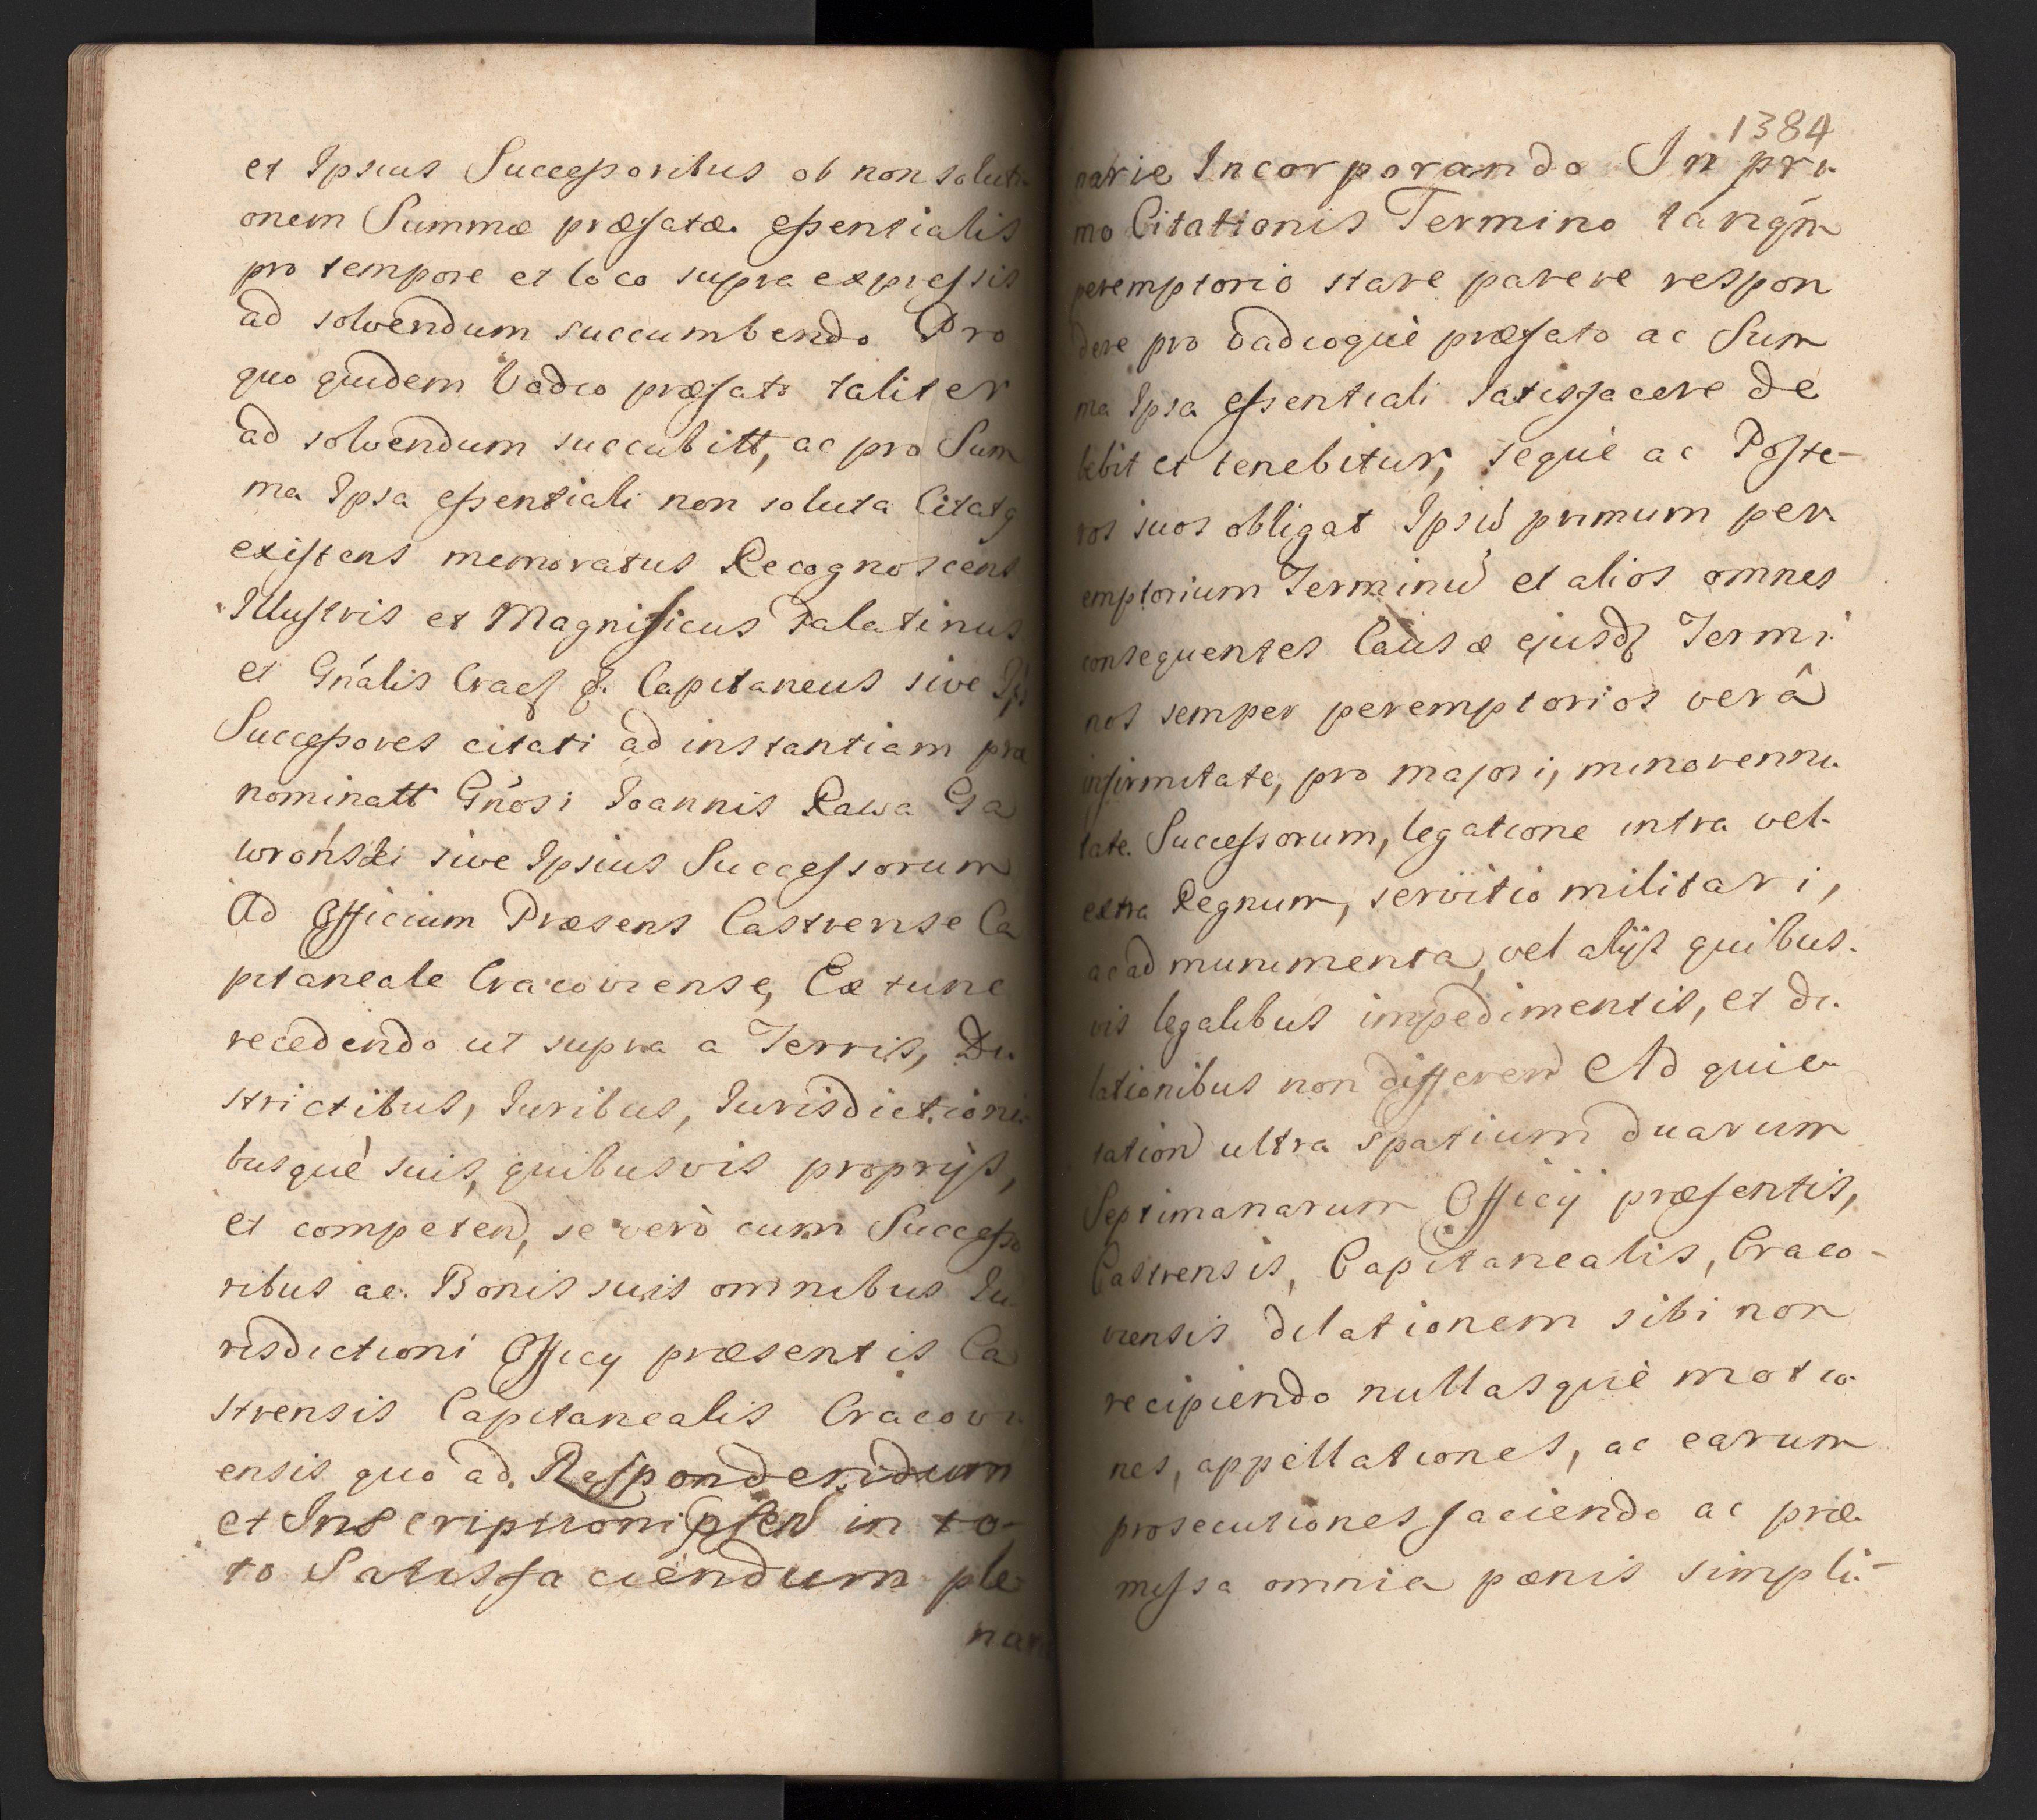 et Ipsius Successoribus ob non soluti-
onem Summæ præfatæ essentialis
pro tempore et loco supra expressis
ad solvendum succumbendo Pro
quo quidem Vadio præfato taliter
ad solvendum succubitt, ac pro Sum
ma Ipsa essentiali non soluta Citatq
existens memoratus Recognoscens
Illustris et Magnificus Palatinus
et Gńalis Cracs g. Capitaneus sive Ips
Successores citati ad instantiam præ
nominatt Gńosi Joannis Rawa Ga
wroński sive Ipsius Successorum
Ad Officium Præsens Castrense Ca
pitaneale Cracoviense, Ex tunc
recedendo ut supra a Terris, Di-
strictibus, Juribus, Jurisdictioni-
busquè suis, quibusvis proprijs,
et competend, se verò cum Successo
ribus ac Bonis suis omnibus Ju
risdictioni Officy præsentis Ca
strensis Capitanealis Cracovi-
ensis quo ad Respondendum
et Inscriptioni pssend in to-
to Satisfaciendum ple-
nari
1384
narie Incorporando In pri-
mo Citationis Termino tanqm̃
peremptorio stare parere respon
dere pro Vadioquè præfato ac Sum
ma Ipsa essentiali satisfacere de
bebit et tenebitur, sequè ac Poste-
ros suos obligat Ipsũ primum per-
emptorium Terminũ et alios omnes
consequentes Causæ ejusd Termi
nos semper peremptorios verâ
infirmitate, pro majori, minorenni-
tate Successorum, legatione intra vel
extra Regnum, servitio militari,
ac ad munimenta, vel alijs quibus-
vis legalibus impedimentis, et di-
lationibus non differend Ad quie-
tation ultra spatium duarum
Septimanarum Officij præsentis,
Castrensis, Capitanealis, Craco-
viensis dilationem sibi non
recipiendo nullasquè motio-
nes, appellationes, ac earum
prosecutiones faciendo ac præ-
missa omnia pænis simpli-